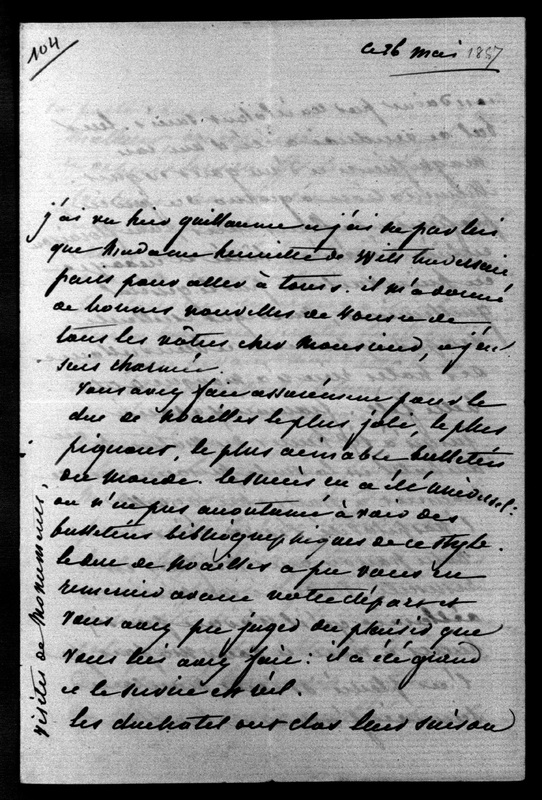 104
ce 26 mai 1857
j'ai vu hier guillaume et j'ai su par lui
que Madame henriette de Witt
partis pour aller à tours. il m'a donné
de bonnes nouvelles de vous et de
tous les vôtres cher Monsieur, et j'en
suis charmée.
Vous avez fait assurément pour le
duc de Noailles le plus joli, le plus
piquant, le plus aimable bulletin
du monde. le succès en a été universel:
on n'est pas accoutumé à voir des
bulletins bibliographiques de ce style.
le duc de Noailles a pu vous en
remercier avant votre départ et
vous avez pu juger du plaisir que
vous lui avez fait: il a été grand
et le service est réel.
les duchatel ont clos leur saison
visites de Monuments,